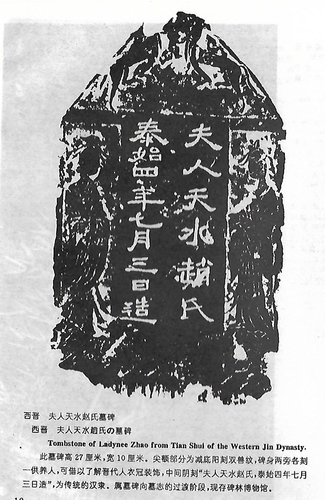 夫人天水趙氏
泰始四年七月三日造
西晋 夫人天水赵氏墓碑
西晉 夫人天水趙氏の墓碑
Tombstone of Ladynee Zhao from Tian Shui of the Western Jin Dynasty.
此墓碑高27厘米,宽10厘米。尖额部分为减底阳刻双螭纹,碑身两旁各刻
一供养人,可借以了解晋代人衣冠装饰,中间阴刻“夫人天水赵氏,泰始四年七月
三日造”,为传统的汉隶。属墓碑向墓志的过渡阶段,现存碑林博物馆。